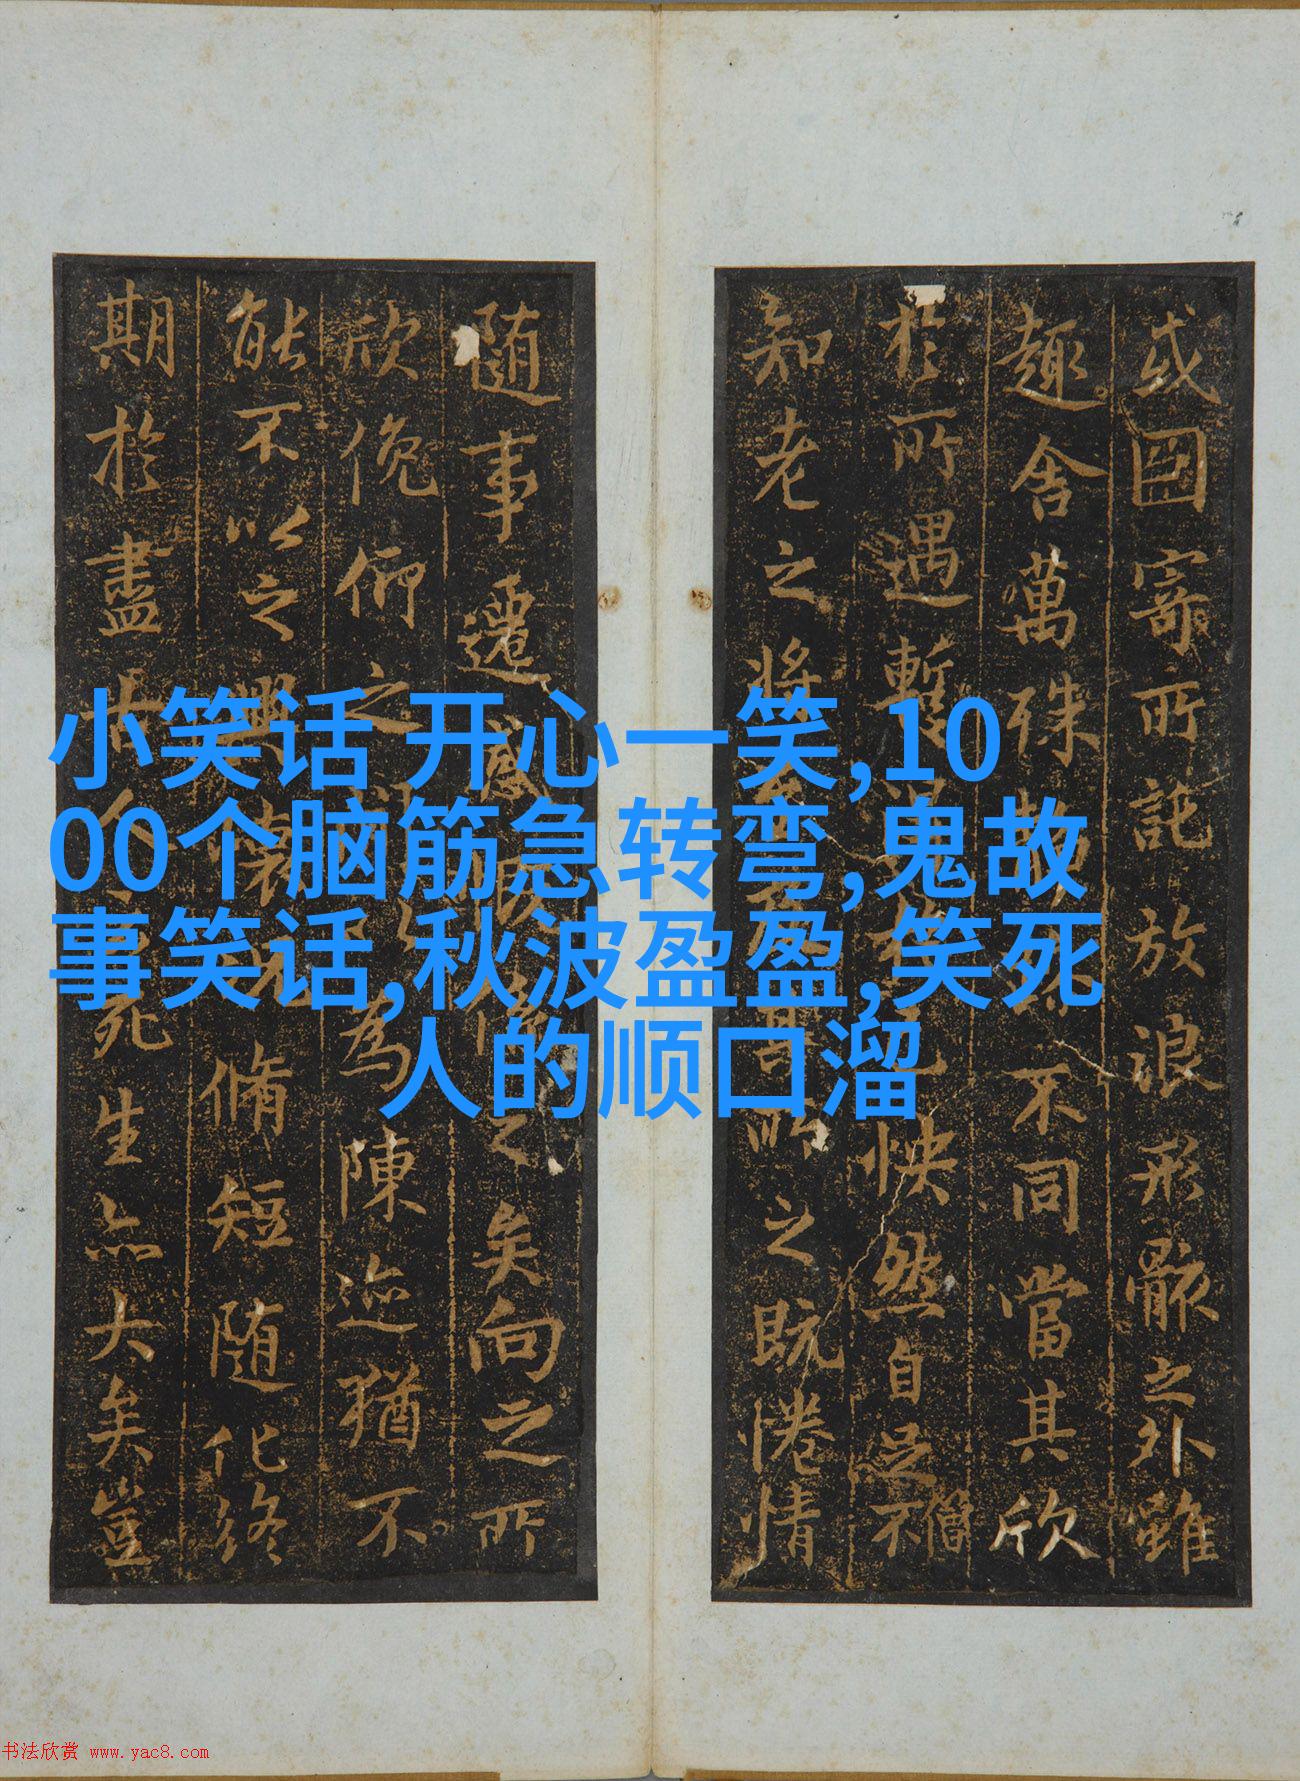 小笑话 开心一笑,10
00个脑筋急转弯,鬼故
事笑话,秋波盈盈,笑死
人的顺口溜
或因寄所託放浪形骸之外雖
趣舍萬殊不同當其欣
於所遇暫怏然自足不
僧
知老之將所之既惓情
随事遷感之矣向之所
欣俛仰之為陳迹猶不
能不以之興脩短随化終
期於盡死生亦大矣豈
书法欣赏 www.yac8.com